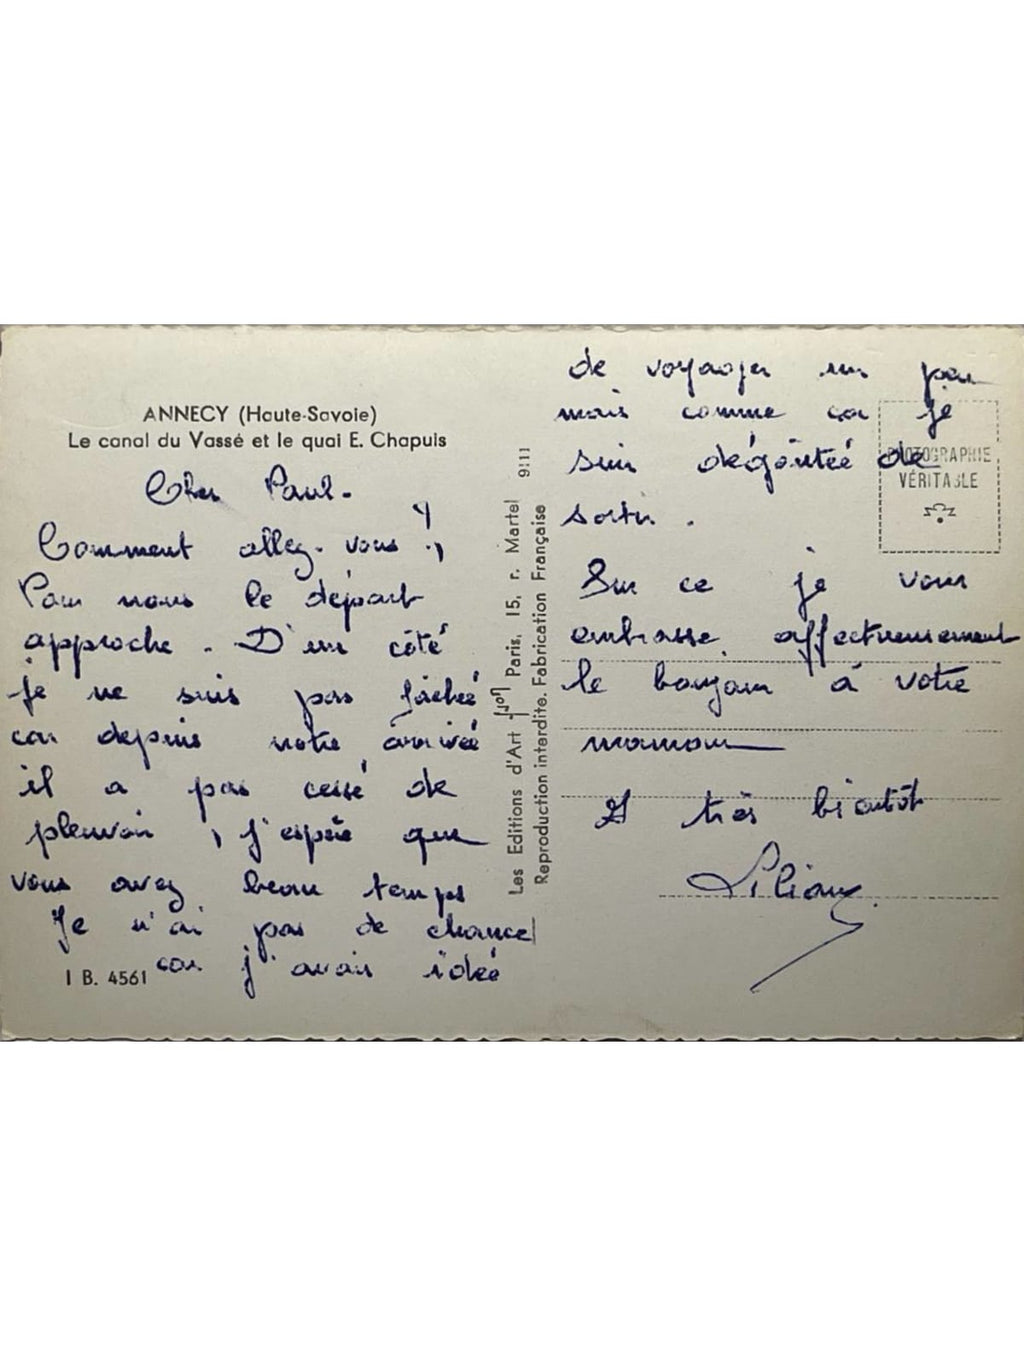 ANNECY (Haute-Savoie)
Le canal du Vassé et le quai E. Chapuis
Cher Paul.
Comment allez-vous ?,
Pour nous le départ
approche. D'un côté
je ne suis pas fachée
car depuis notre arrivée
il a pas cessé de
pleuvoir, j'espère que
vous avez beau temps
Je n'ai pas de chance
car j'avais idée
I B. 4561
Les Editions d'Art Paris, 15, r. Martel 9111
Reproduction interdite. Fabrication Française
de voyager un peu
mais comme ça je
suis dégoûtée de
sortir.
Sur ce je vous
embrasse affectueusement
le bonjour à votre
maman
A très bientôt
Liliane
PHOTOGRAPHIE
VÉRITABLE